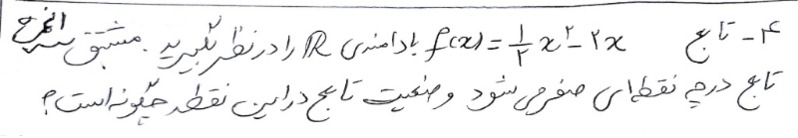 ۴- تابع f(x) = ۱/۲ x² - ۲x با دامنه‌ی R را در نظر بگیرید. مشتق این
تابع در چه نقطه‌ای صفر می شود وضعیت تابع در این نقطه چگونه است؟